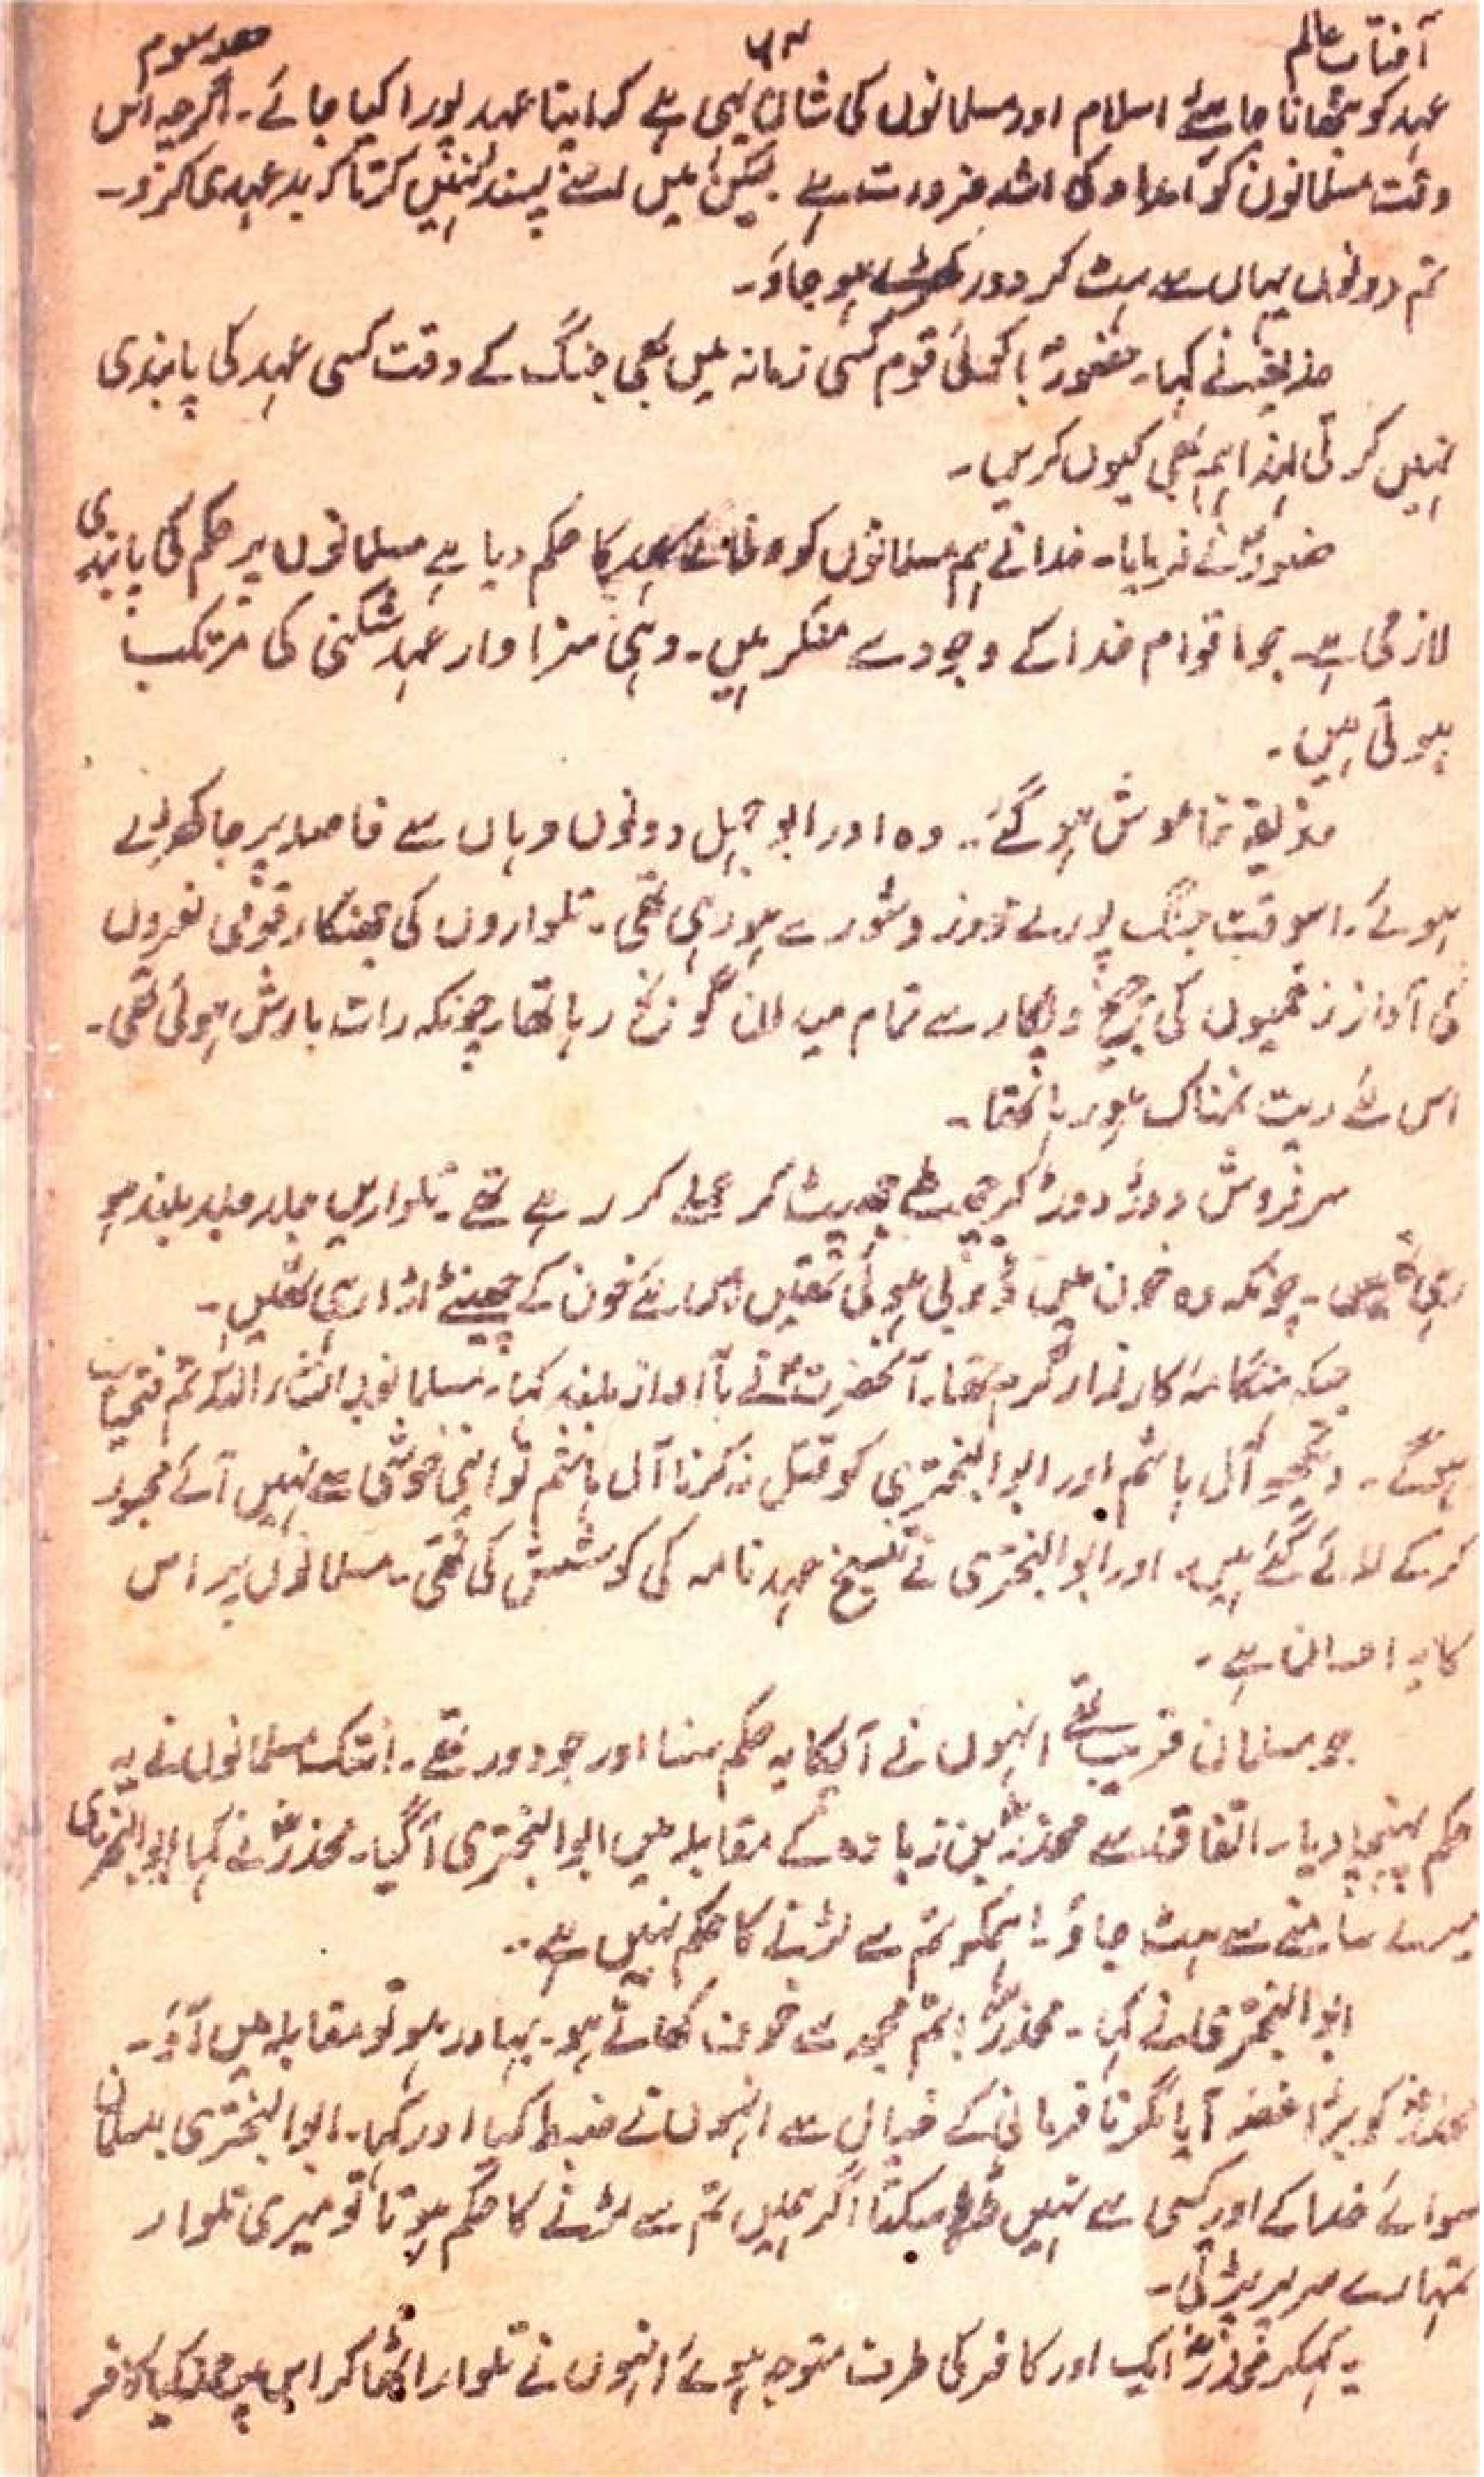 آفتاب عالم ۶۴ حصہ سوم
عہد کو نبھانا چاہئے اسلام اور مسلمانوں کی شان یہی ہے کہ اپنا عہد پورا کیا جائے۔ اگرچہ اس
وقت مسلمانوں کو امداد کی اشد ضرورت ہے۔ لیکن میں اسے پسند نہیں کرتا کہ بد عہدی کرو۔
تم دونوں یہاں سے ہٹ کر دور کھڑے ہو جاؤ۔
حذیفہ نے کہا۔ حضورؐ! کوئی قوم کسی زمانہ میں بھی جنگ کے وقت کسی عہد کی پابندی
نہیں کرتی لہذا ہم بھی کیوں کریں۔
حضورؐ نے فرمایا۔ خدا نے ہم مسلمانوں کو وفائے عہد کا حکم دیا ہے مسلمانوں پر حکم کی پابندی
لازمی ہے۔ جو اقوام خدا کے وجود سے منکر ہیں۔ وہی سزا وار عہد شکنی کی مرتکب
ہوتی ہیں۔
حذیفہ خاموش ہو گئے۔ وہ اور ابو جہل دونوں وہاں سے فاصلہ پر جا کھڑے
ہوئے۔ اسوقت جنگ پورے زور و شور سے ہو رہی تھی۔ تلواروں کی جھنکار قومی نعروں
کی آواز زخمیوں کی چیخ و پکار سے تمام میدان گونج رہا تھا۔ چونکہ رات بارش ہوئی تھی۔
اس لئے ریت نمناک ہو رہا تھا۔
سرفروش دوڑ دوڑ کر جھپٹ جھپٹ کر حملے کر رہے تھے۔ تلواریں جلد جلد بلند ہو
رہی تھیں۔ چونکہ وہ خون میں ڈوبی ہوئی تھیں اس لئے خون کے چھینٹے اڑا رہی تھیں۔
جبکہ ہنگامہ کارزار گرم تھا۔ آنحضرتؐ نے بآواز بلند کہا۔ مسلمانوں انشاء اللہ تم فتحیاب
ہوگے۔ دیکھو آل ہاشم اور ابوالبختری کو قتل نہ کرنا آل ہاشم تو اپنی خوشی سے نہیں آئے مجبور
کر کے لائے گئے ہیں۔ اور ابوالبختری نے تنسیخ عہد نامہ کی کوشش کی تھی۔ مسلمانوں پر اس
کا یہ احسان ہے۔
جو مسلمان قریب تھے انہوں نے آپکا یہ حکم سنا اور جو دور تھے۔ ان تک مسلمانوں نے یہ
حکم پہنچا دیا۔ اتفاق سے محذرؓ بن زیادہ کے مقابلہ میں ابوالبختری آ گیا۔ محذرؓ نے کہا ابوالبختری
میرے سامنے سے ہٹ جاؤ۔ ہمکو تم سے لڑنے کا حکم نہیں ہے۔
ابوالبختری نے کہا۔ محذرؓ! تم مجھ سے خوف کھاتے ہو۔ بہادر ہو تو مقابلہ میں آؤ۔
محذرؓ کو بڑا غصہ آیا مگر نافرمانی کے خیال سے انہوں نے ضبط کیا اور کہا۔ ابوالبختری مسلمان
سوائے خدا کے اور کسی سے نہیں ڈر سکتا اگر ہمیں تم سے لڑنے کا حکم ہوتا تو میری تلوار
تمہارے سر پر پڑتی۔
یہ کہکر محذرؓ ایک اور کافر کی طرف متوجہ ہوئے انہوں نے تلوار اٹھا کر اس پر حملہ کیا کافر